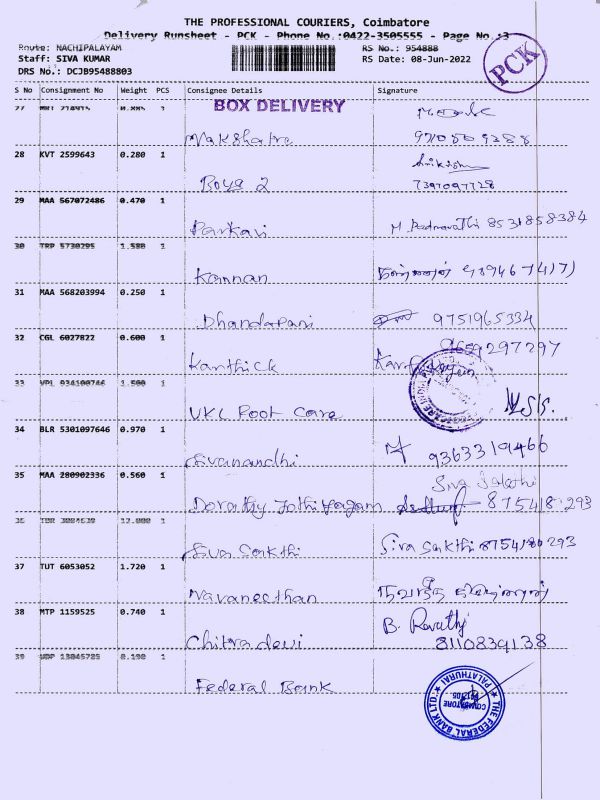 THE PROFESSIONAL COURIERS, Coimbatore
Delivery Runsheet - PCK - Phone No.:0422-3505555 - Page No.:3
Route: NACHIPALAYAM
Staff: SIVA KUMAR
DRS No.: DCJB95488803
RS No.: 954888
RS Date: 08-Jun-2022
PCK
S No Consignment No Weight PCS Consignee Details Signature
BOX DELIVERY
27
Nakshatra
28 KVT 2599643 0.280 1
Boya 2 7397097728
29 MAA 567072486 0.470 1
Parkavi M Padmavathi 8531858384
30 TRP 5730295 1.580 1
Kannan
31 MAA 568203994 0.250 1
Dhandapani 9751965334
32 CGL 6027822 0.600 1
Karthick 9659297297
33 VPL 934100746 1.500 1
VKC Foot Care
34 BLR 5301097646 0.970 1
Sivanandhi 9363319466
35 MAA 280902336 0.560 1
Siva Sakthi
Dorathy 8754181293
36 12.000 1
Siva Sakthi Siva Sakthi 8754180293
37 TUT 6053052 1.720 1
Navaneethan
38 MTP 1159525 0.740 1
Chitra devi B. Revathi
8110839138
39 0.190 1
Federal Bank
THE FEDERAL BANK LTD
PALATHURAI
COIMBATORE